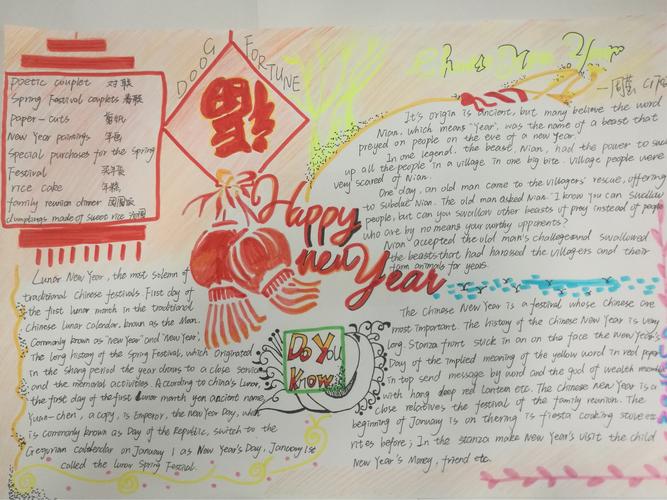 DOOG FORTUNE
福
poetic couplet 对联
Spring Festival couplets 春联
paper-cuts 剪纸
New Year paintings 年画
special purchases for the Spring
Festival 买年货
rice cake 年糕
family reunion dinner 团圆饭
dumplings made of sweet rice 汤圆
Happy
new
Year
It's origin is ancient, but many believe the word
Nian, which means "Year", was the name of a beast that
preyed on people on the eve of a new Year.
In one legend, the beast, Nian, had the power to
up all the people in a village in one big bite. Village people were
very scared of Nian.
One day, an old man came to the villagers' rescue, offering
to subdue Nian. The old man asked Nian "I know you can swallow
people, but can you swallow other beasts of prey instead of people
who are by no means you worthy opponents?
Nian accepted the old man's challenge and swallowed
the beasts that had harassed the villagers and their
farm animals for years.
Lunar New Year, the most solemn of
traditional Chinese festivals. First day of
the first lunar month in the traditional
Chinese lunar calendar, known as the Man.
Commonly known as 'New Year' and 'New Year',
The long history of the Spring Festival, which originated
in the Shang period the year draws to a close service
and the memorial activities. According to China's Lunar,
the first day of the first lunar month yen ancient name,
Yuan-chen, a copy, is Emperor, the new Year Day,
is commonly known as Day of the Republic, switch to the
Gregorian calendar on January 1 as New Year's Day, January 1se
called the lunar Spring Festival.
Do You
Know
The Chinese New Year is a festival whose Chinese are
most important. The history of the Chinese New Year is very
long. Stanza front stick in an on the face the New Year's
Day of the implied meaning of the yellow word in red paper
in top send message by word and the god of wealth
with hang deep red lantern etc. The Chinese New Year is a
close relatives the festival of the family reunion. The
beginning of January is on therning is fiesta cooking stove etc
rites before; In the stanza make New Year's visit the child
New Year's Money, friend etc.